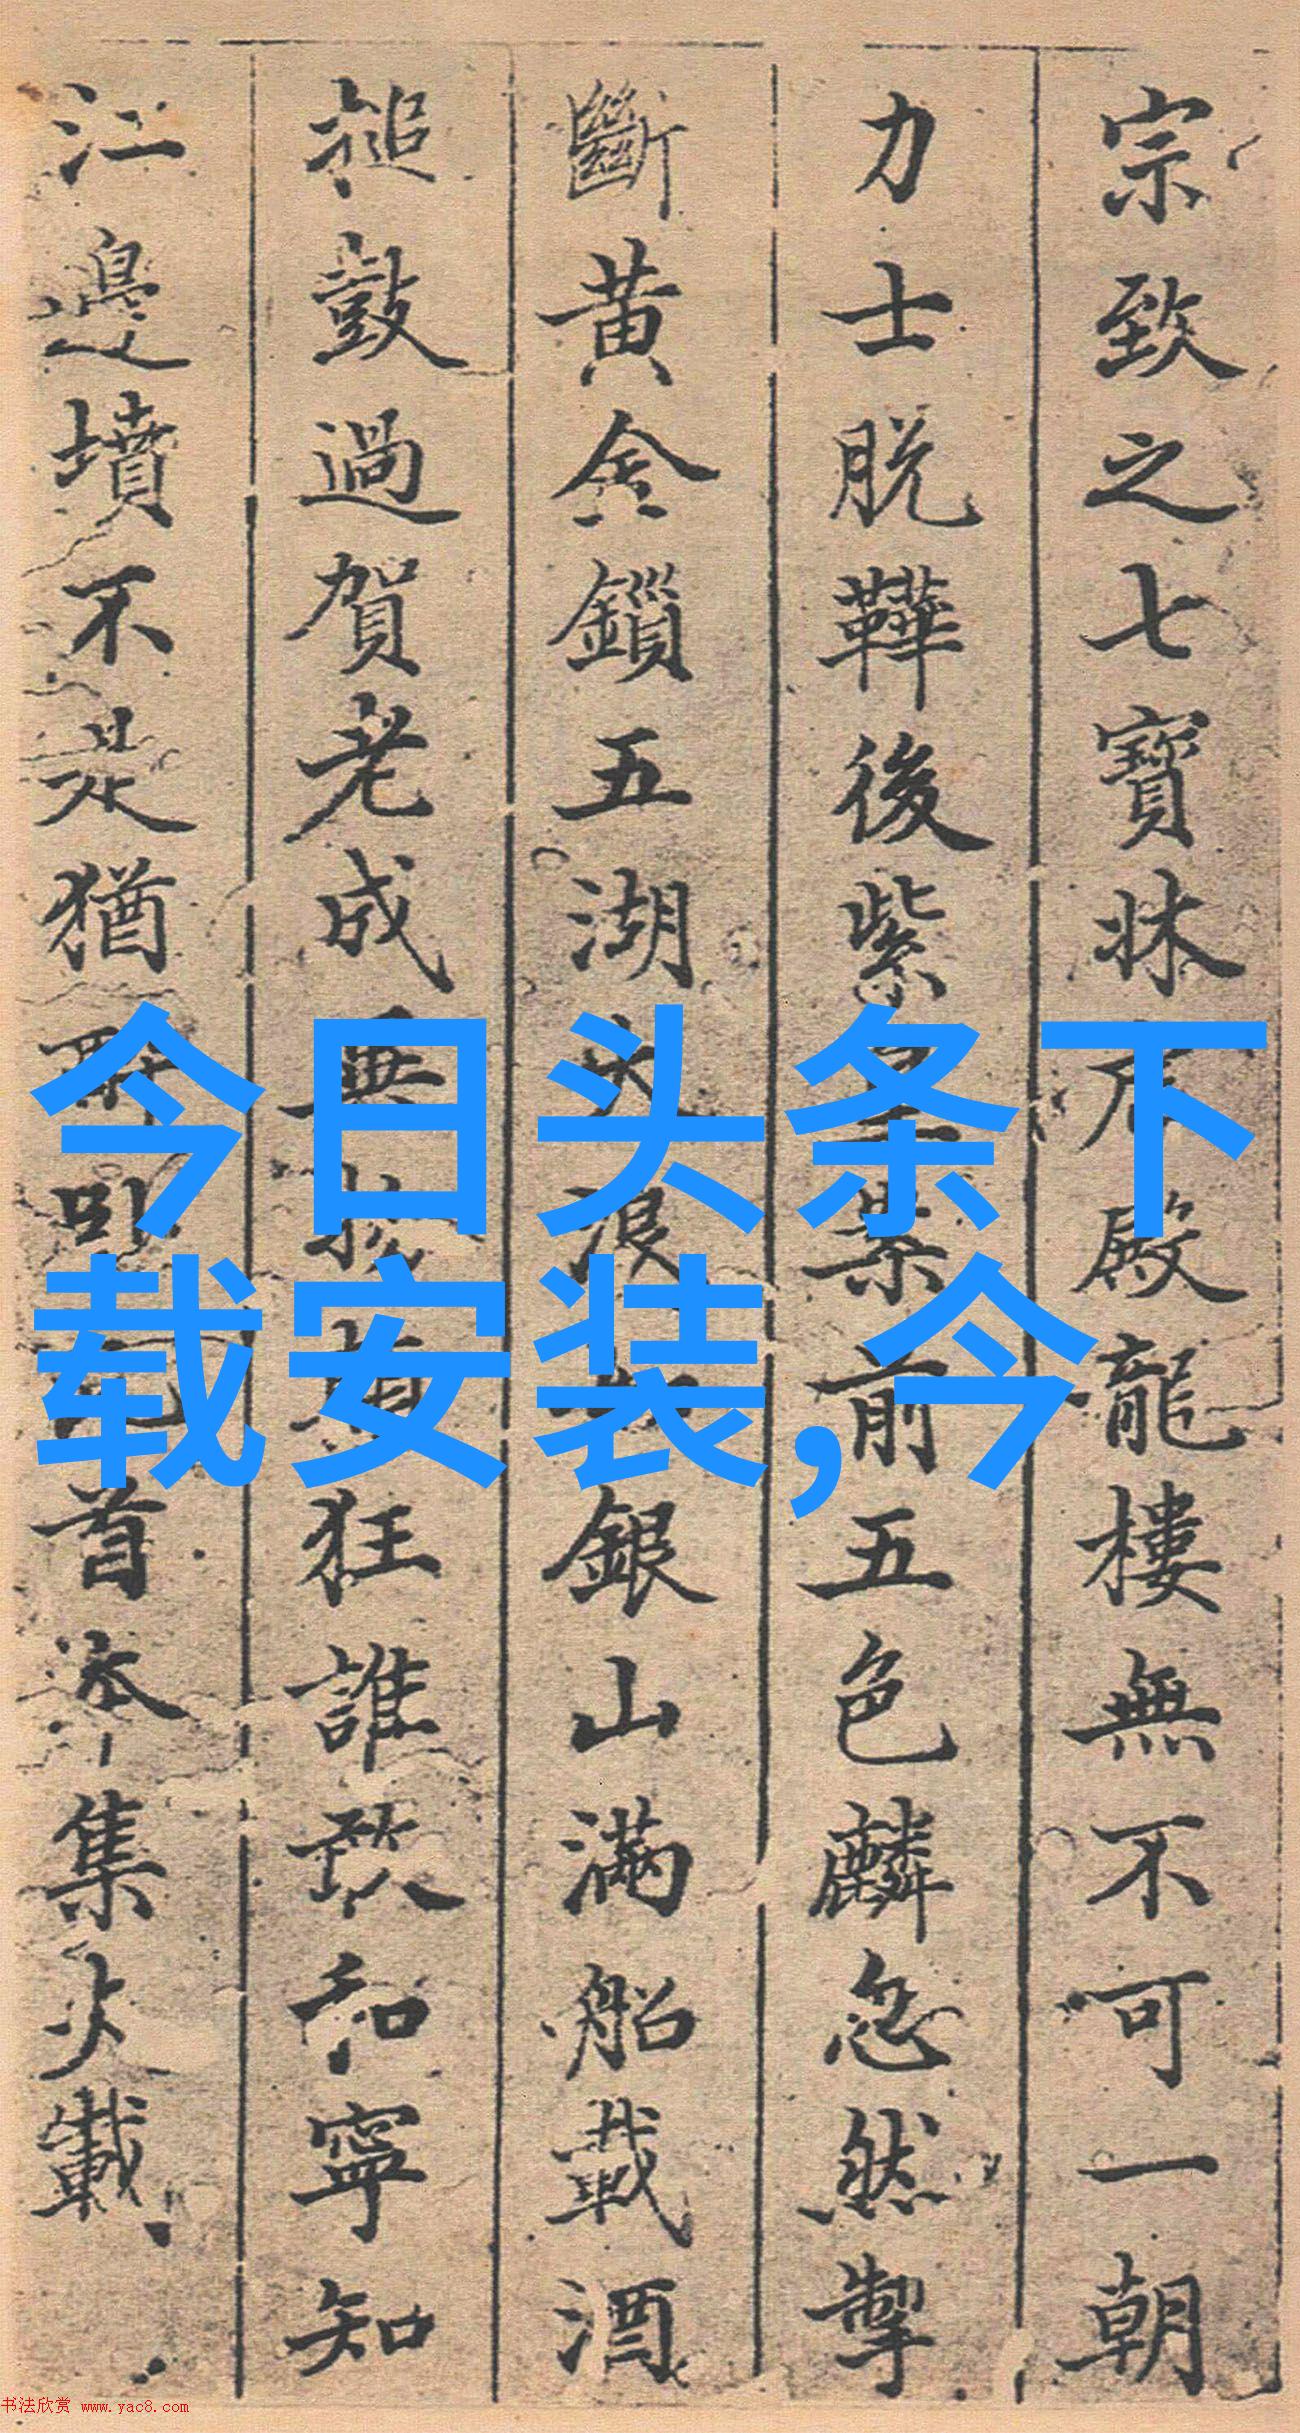 宗致之七寶牀殿龍樓無不可一朝
力士脱鞾後紫案前五色麟忽然掣
斷黄金鎖五湖大浪銀山滿船載酒
搥鼓過賀老成狂誰敢和寧知
江邊墳不是猶首本集失載
今日头条下
载安装,今
书法欣赏 www.yac8.com